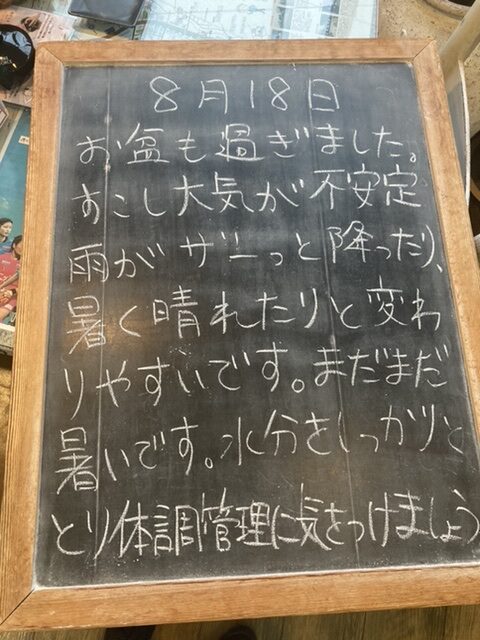 8月18日
お盆も過ぎました。
すこし大気が不安定
雨がザーっと降ったり、
暑く晴れたりと変わ
りやすいです。まだまだ
暑いです。水分をしっかりと
とり体調管理に気をつけましょう